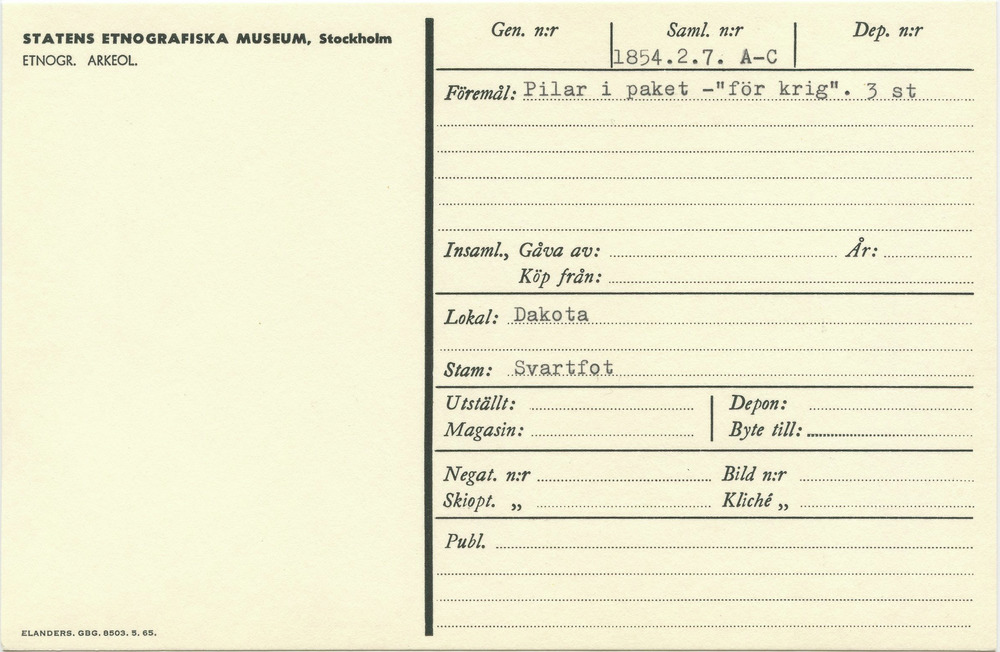 STATENS ETNOGRAFISKA MUSEUM, Stockholm
ETNOGR. ARKEOL.
Gen. n:r Saml. n:r Dep. n:r
1854.2.7. A-C
Föremål: Pilar i paket -"för krig". 3 st
Insaml., Gåva av: År:
Köp från:
Lokal: Dakota
Stam: Svartfot
Utställt: Depon:
Magasin: Byte till:
Negat. n:r Bild n:r
Skiopt. „ Kliché „
Publ.
ELANDERS. GBG. 8503. 5. 65.